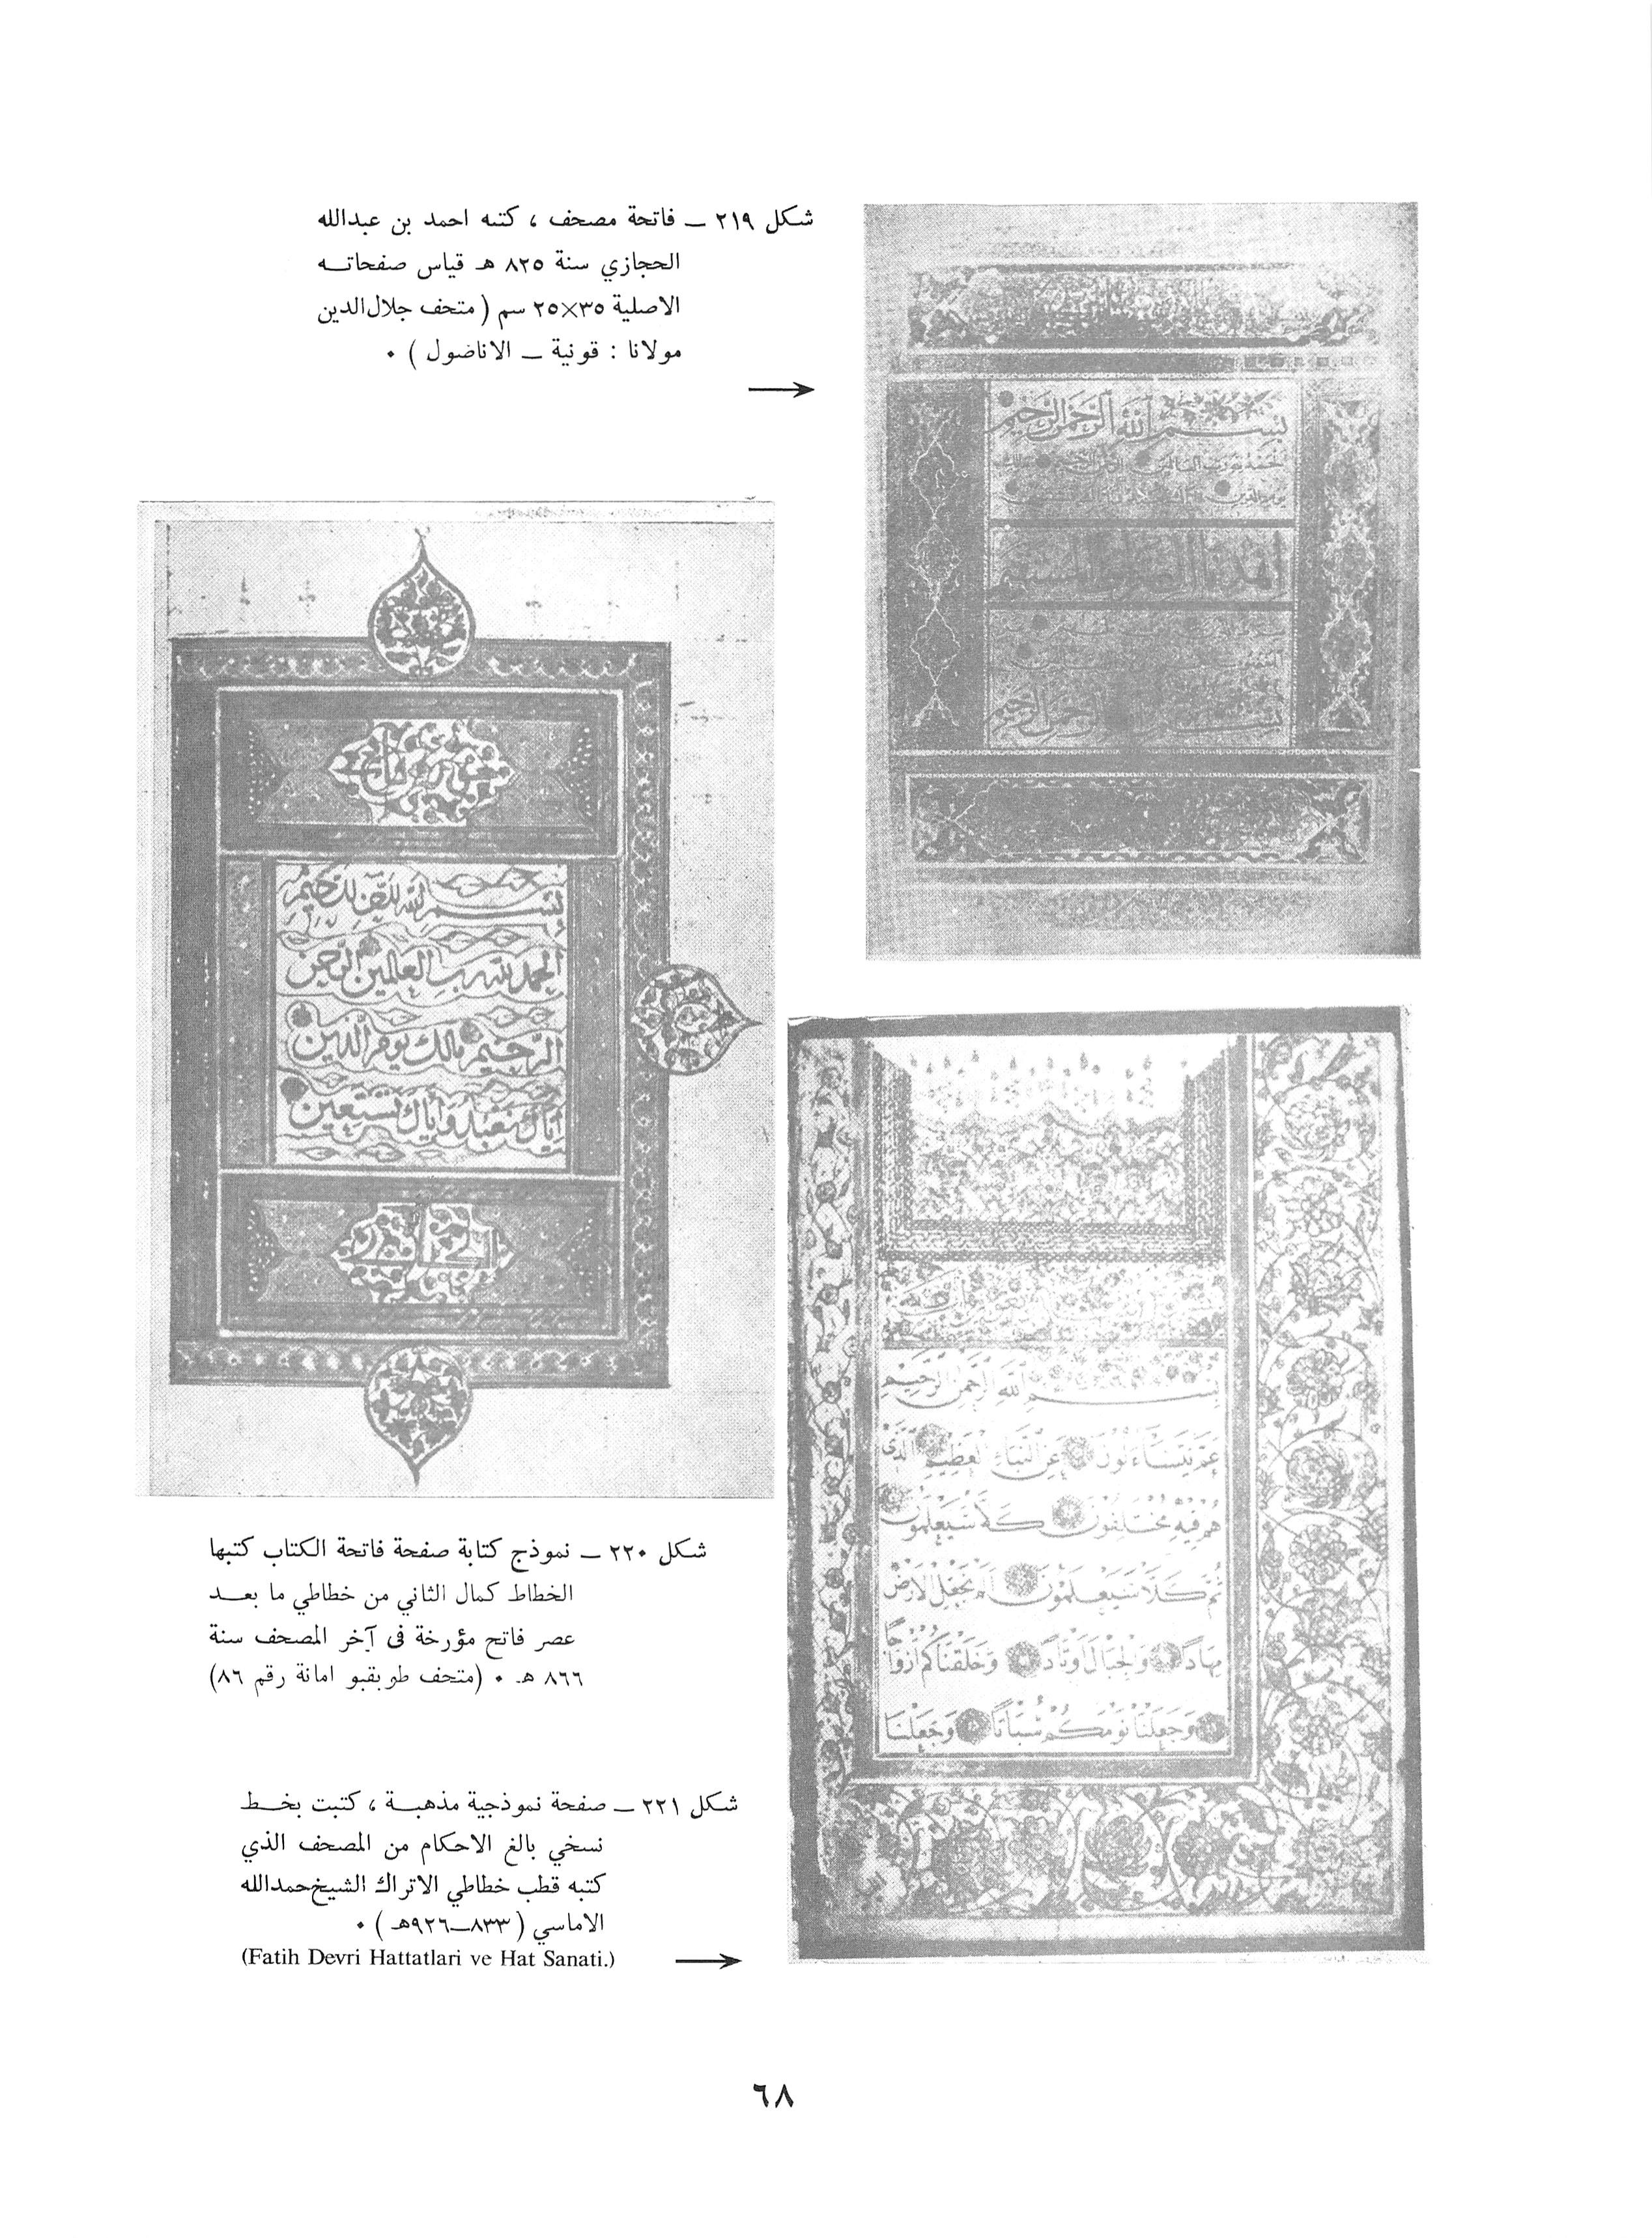 شكل ٢١٩ ــ فاتحة مصحف ، كتبه احمد بن عبدالله
الحجازي سنة ٨٢٥ هـ قياس صفحاتـه
الاصلية ٣٥×٢٥ سم ( متحف جلال الدين
مولانا : قونية ــ الاناضول ) ٠
بسم الله الرحمن الرحيم
بسم الله الرحمن الرحيم
الحمد لله رب العالمين الرحمن
الرحيم مالك يوم الدين
إياك نعبد وإياك نستعين
شكل ٢٢٠ ــ نموذج كتابة صفحة فاتحة الكتاب كتبها
الخطاط كمال الثاني من خطاطي ما بعـد
عصر فاتح مؤرخة فى آخر المصحف سنة
٨٦٦ هـ ٠ (متحف طوبقبو امانة رقم ٨٦)
بسم الله الرحمن الرحيم
عَمَّ يَتَسَاءَلُونَ عَنِ النَّبَإِ الْعَظِيمِ الَّذِي
هُمْ فِيهِ مُخْتَلِفُونَ كَلَّا سَيَعْلَمُونَ
ثُمَّ كَلَّا سَيَعْلَمُونَ أَلَمْ نَجْعَلِ الْأَرْضَ
مِهَادًا وَالْجِبَالَ أَوْتَادًا وَخَلَقْنَاكُمْ أَزْوَاجًا
وَجَعَلْنَا نَوْمَكُمْ سُبَاتًا وَجَعَلْنَا
شكل ٢٢١ ــ صفحة نموذجية مذهبـة ، كتبت بخـط
نسخي بالغ الاحكام من المصحف الذي
كتبه قطب خطاطي الاتراك الشيخ حمدالله
الاماسي ( ٨٣٣ــ٩٢٦هـ ) ٠
(Fatih Devri Hattatlari ve Hat Sanati.)
٦٨